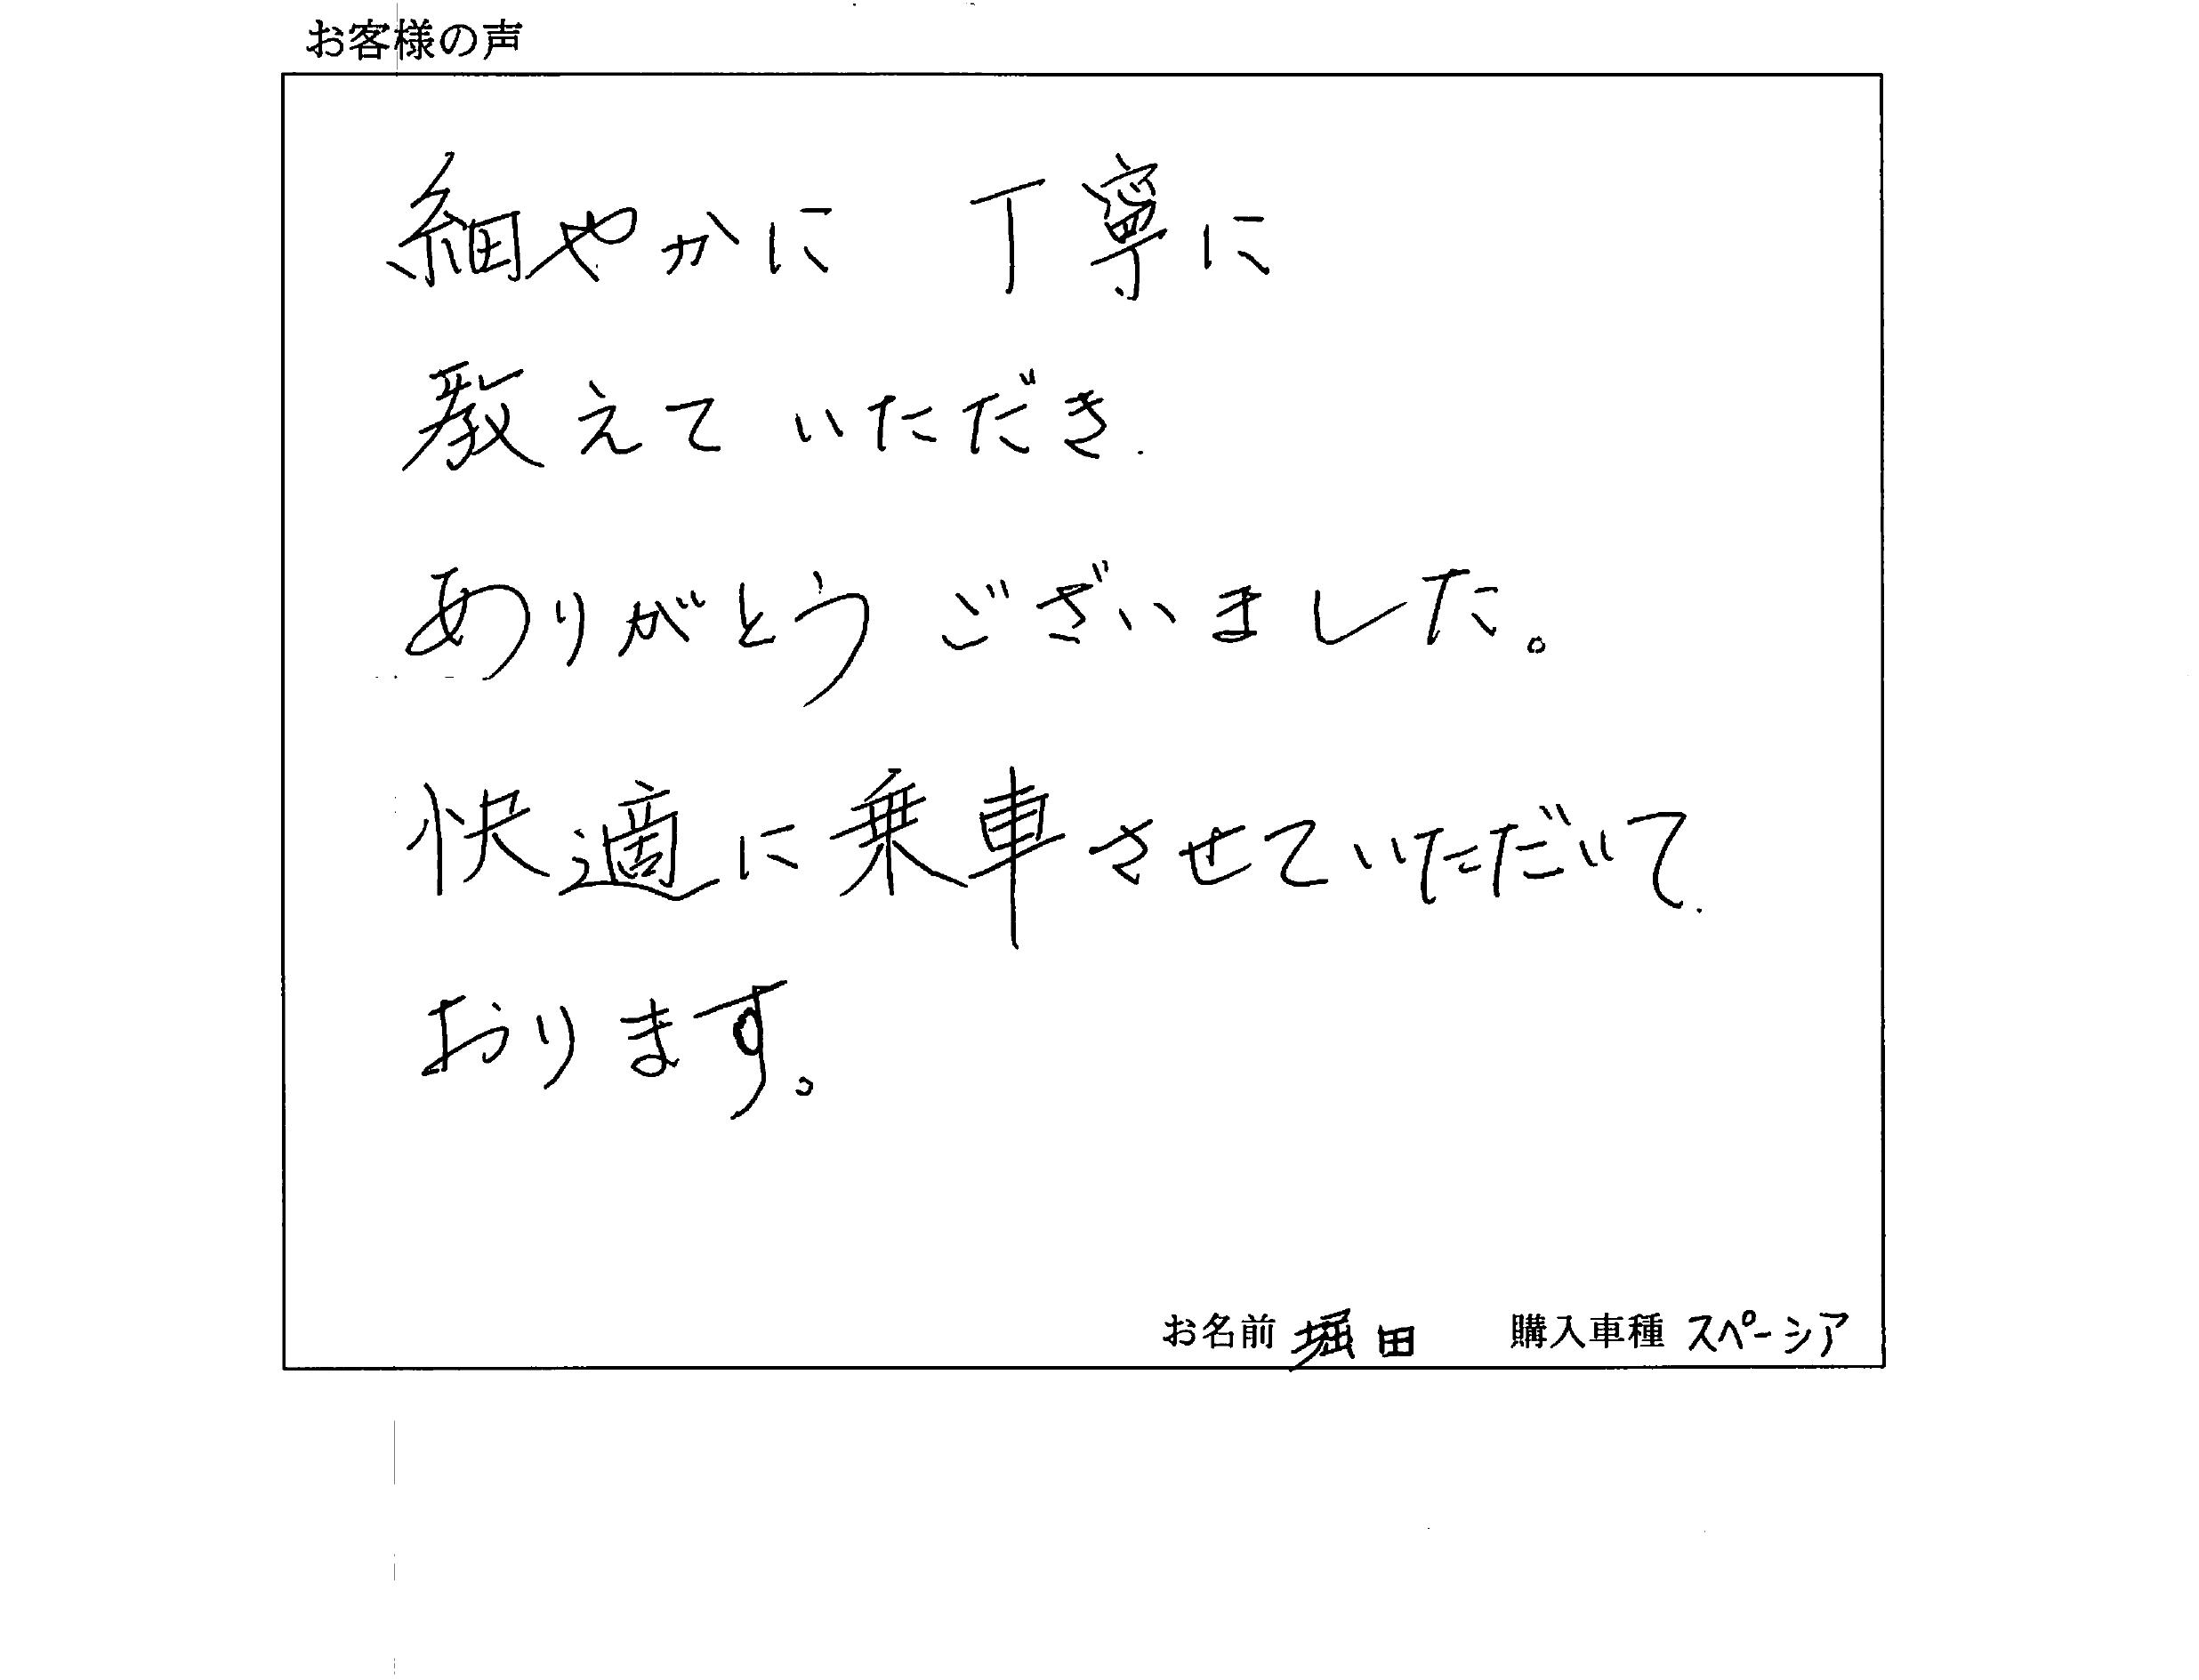 お客様の声
細やかに 丁寧に
教えていただき
ありがとうございました。
快適に乗車させていただいて
おります。
お名前 堀田 購入車種 スペーシア